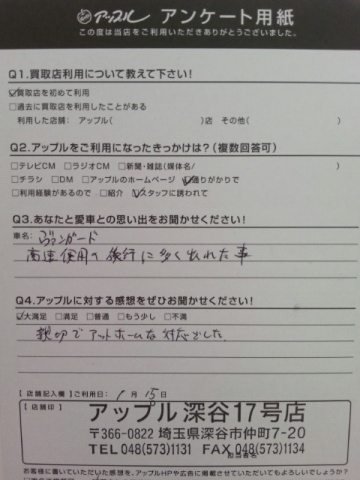 アップル アンケート用紙
この度は当店をご利用いただきありがとうございました。
Q1.買取店利用について教えて下さい!
☑買取店を初めて利用
□過去に買取店を利用したことがある
利用した店舗: アップル( )店 その他( )
Q2.アップルをご利用になったきっかけは?(複数回答可)
□テレビCM □ラジオCM □新聞・雑誌(媒体名/ )
□チラシ □DM □アップルのホームページ ☑通りがかりで
□利用経験があるので □紹介 ☑スタッフに誘われて
Q3.あなたと愛車との思い出をお聞かせください!
車名: ヴァンガード
高速使用の旅行に多く出れた事
Q4.アップルに対する感想をぜひお聞かせください!
☑大満足 □満足 □普通 □もう少し □不満
親切でアットホームな対応でした
【店舗記入欄】ご利用日: 1月15日
【店舗印】
アップル深谷17号店
〒366-0822 埼玉県深谷市仲町7-20
TEL 048(573)1131 FAX 048(573)1134
担当者名
お客様に書いていただいた感想を、アップルHPや広告に掲載させていただいてもよろしいでしょうか?